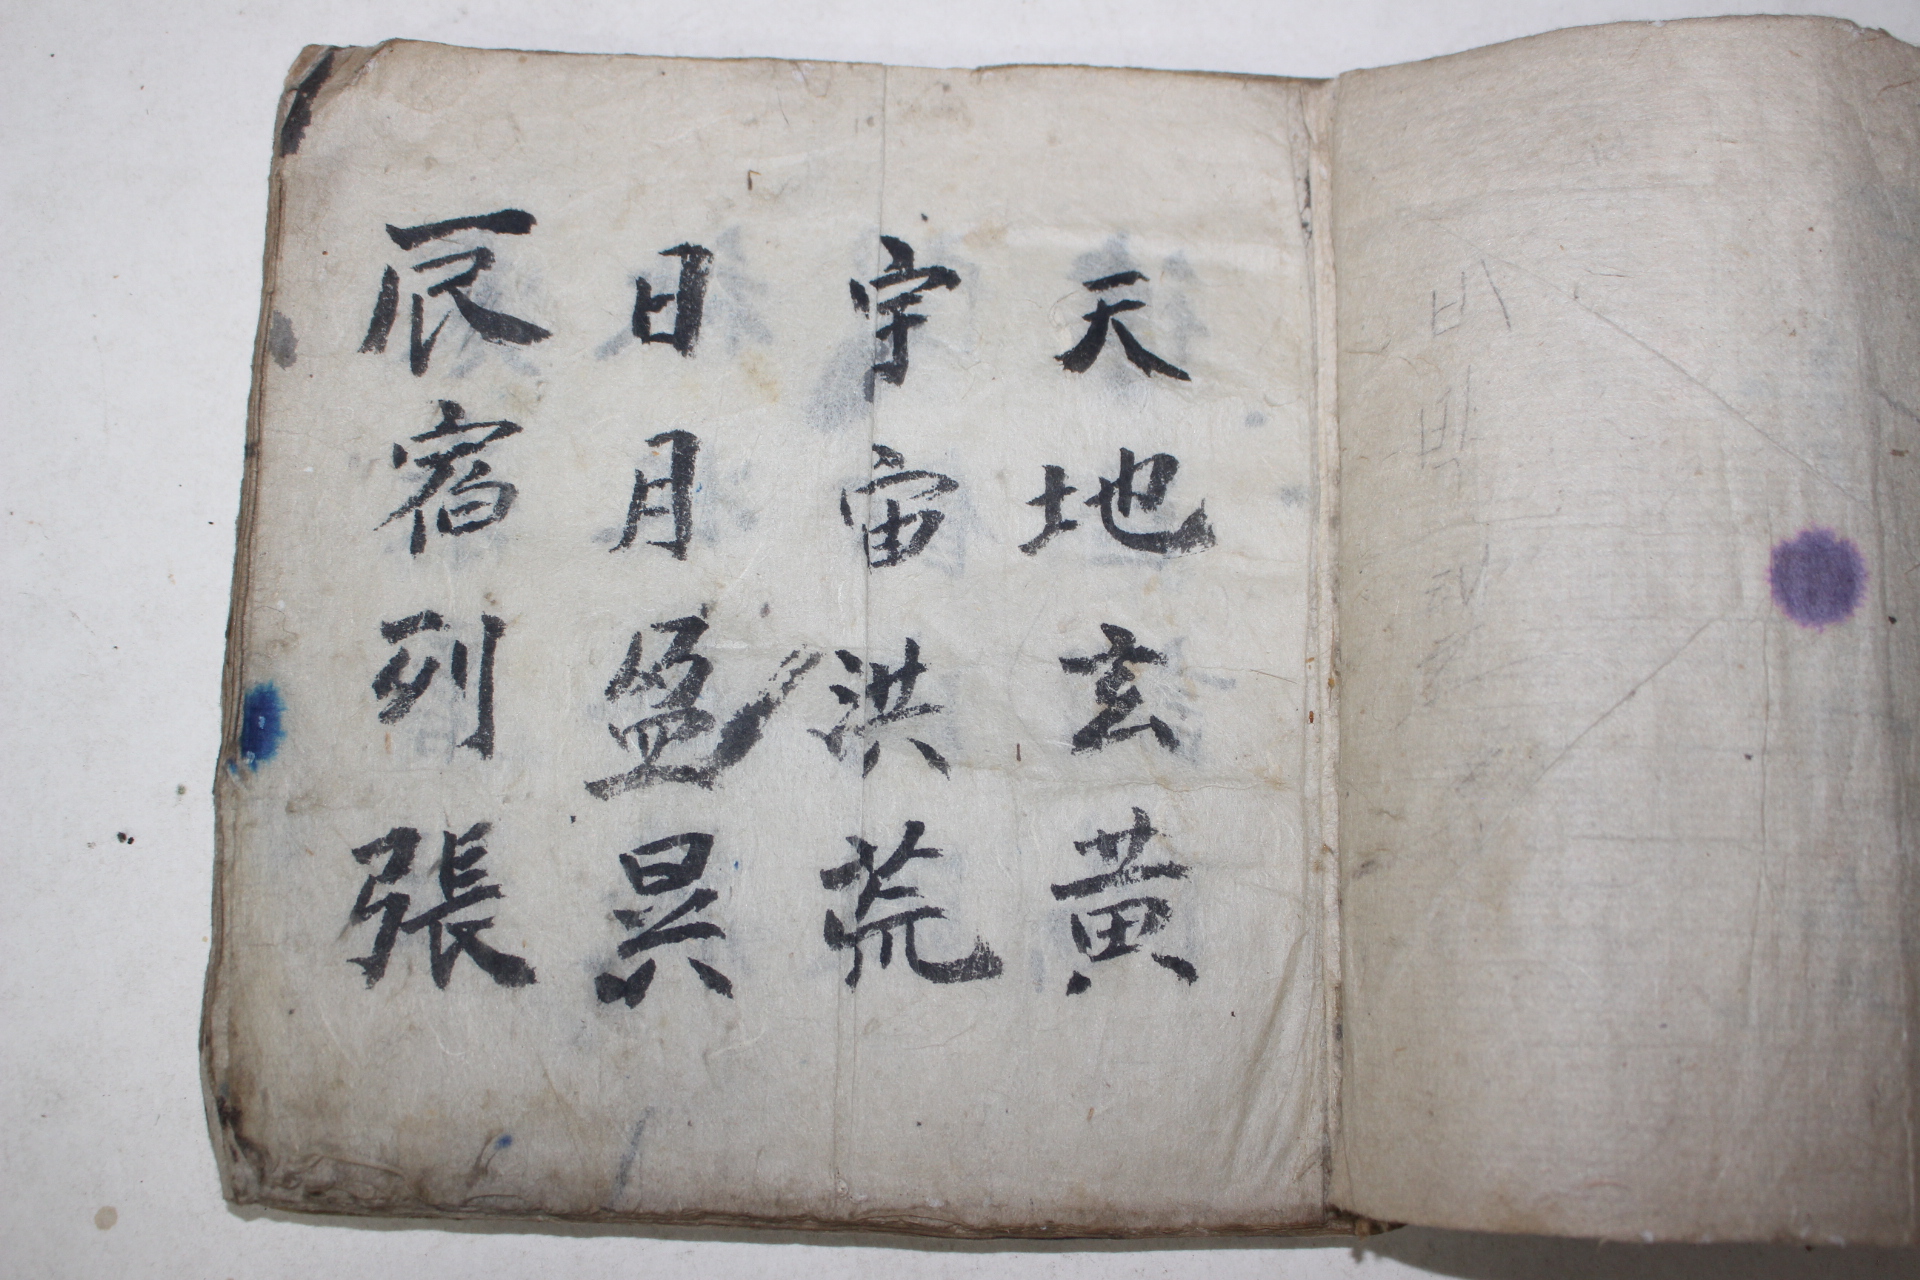 바
박
天地玄黃
宇宙洪荒
日月盈昃
辰宿列張